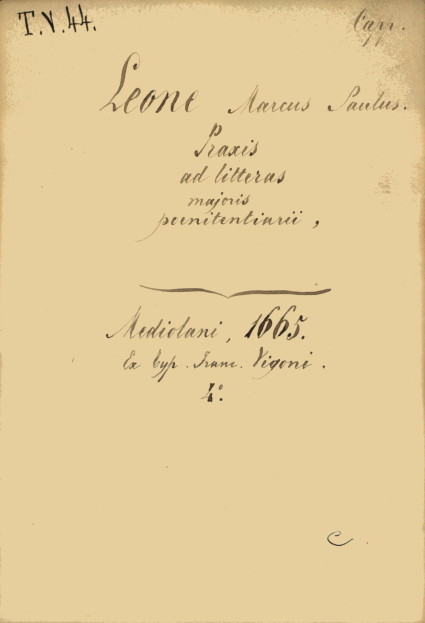 T.V.44.
Leone Marcus Paulus.
Praxis
ad litteras
majoris
poenitentiarii,
Mediolani, 1665.
Ex Typ. Franc. Vigoni.
4°.
C.